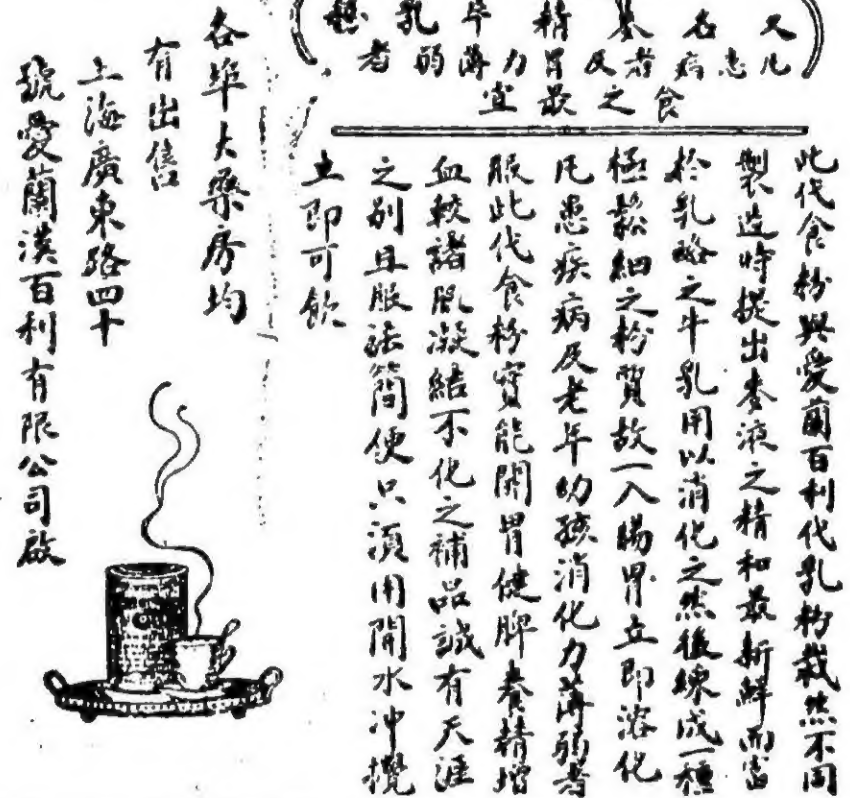 食之最宜
此代食粉與愛蘭百利代乳粉截然不同
製造時提出麥液之精和最新鮮而富
於乳酪之牛乳用以消化之然後煉成一種
極鬆細之粉質故一入腸胃立即溶化
凡患疾病及老年幼孩消化力薄弱者
服此代食粉實能開胃健脾養精增
血較諸凝結不化之補品誠有天涯
之別且服法簡便只須用開水冲攪
立即可飲
各埠大藥房均
有出售
上海廣東路四十
號愛蘭漢百利有限公司啟